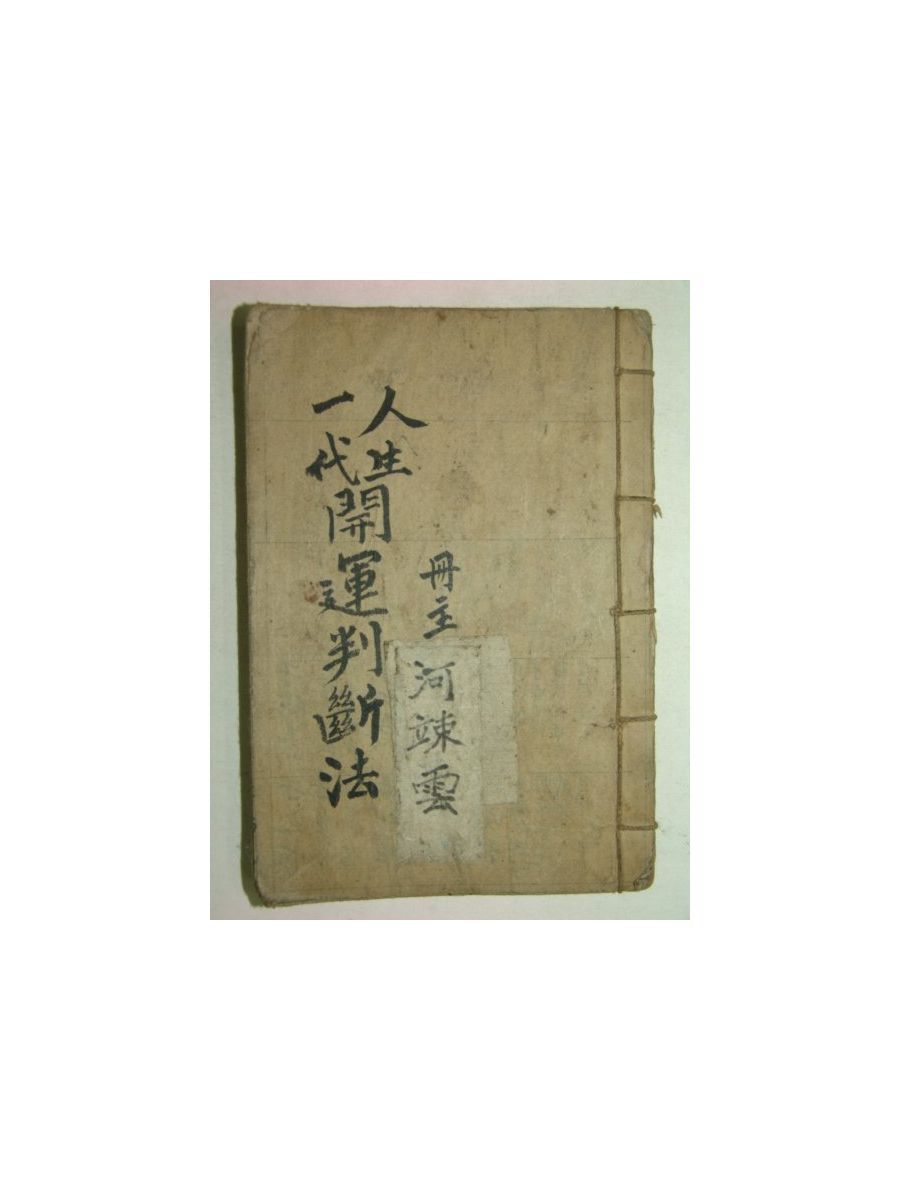 冊主 河竦雲
人生
一代
開運判斷法